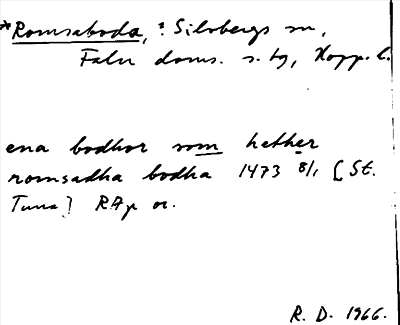 *Romsaboda, ? Silvbergs sn,
Falu doms. s. tg, Kopp. l.
ena bodhor som hether
romsadha bodha 1473 8/1 [St.
Tuna] RAp or.
R. D. 1966.